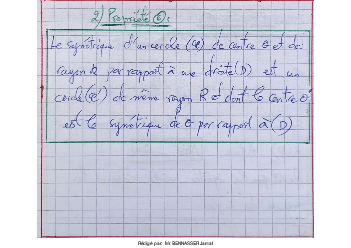 2) Propriété ⑥:
Le symétrique d'un cercle (φ) de centre O et de
rayon R par rapport à une droite (D) est un
cercle (φ') de même rayon R et dont le centre O'
est le symétrique de O par rapport à (D)
Rédigé par: Mr BENNASSER Jamal